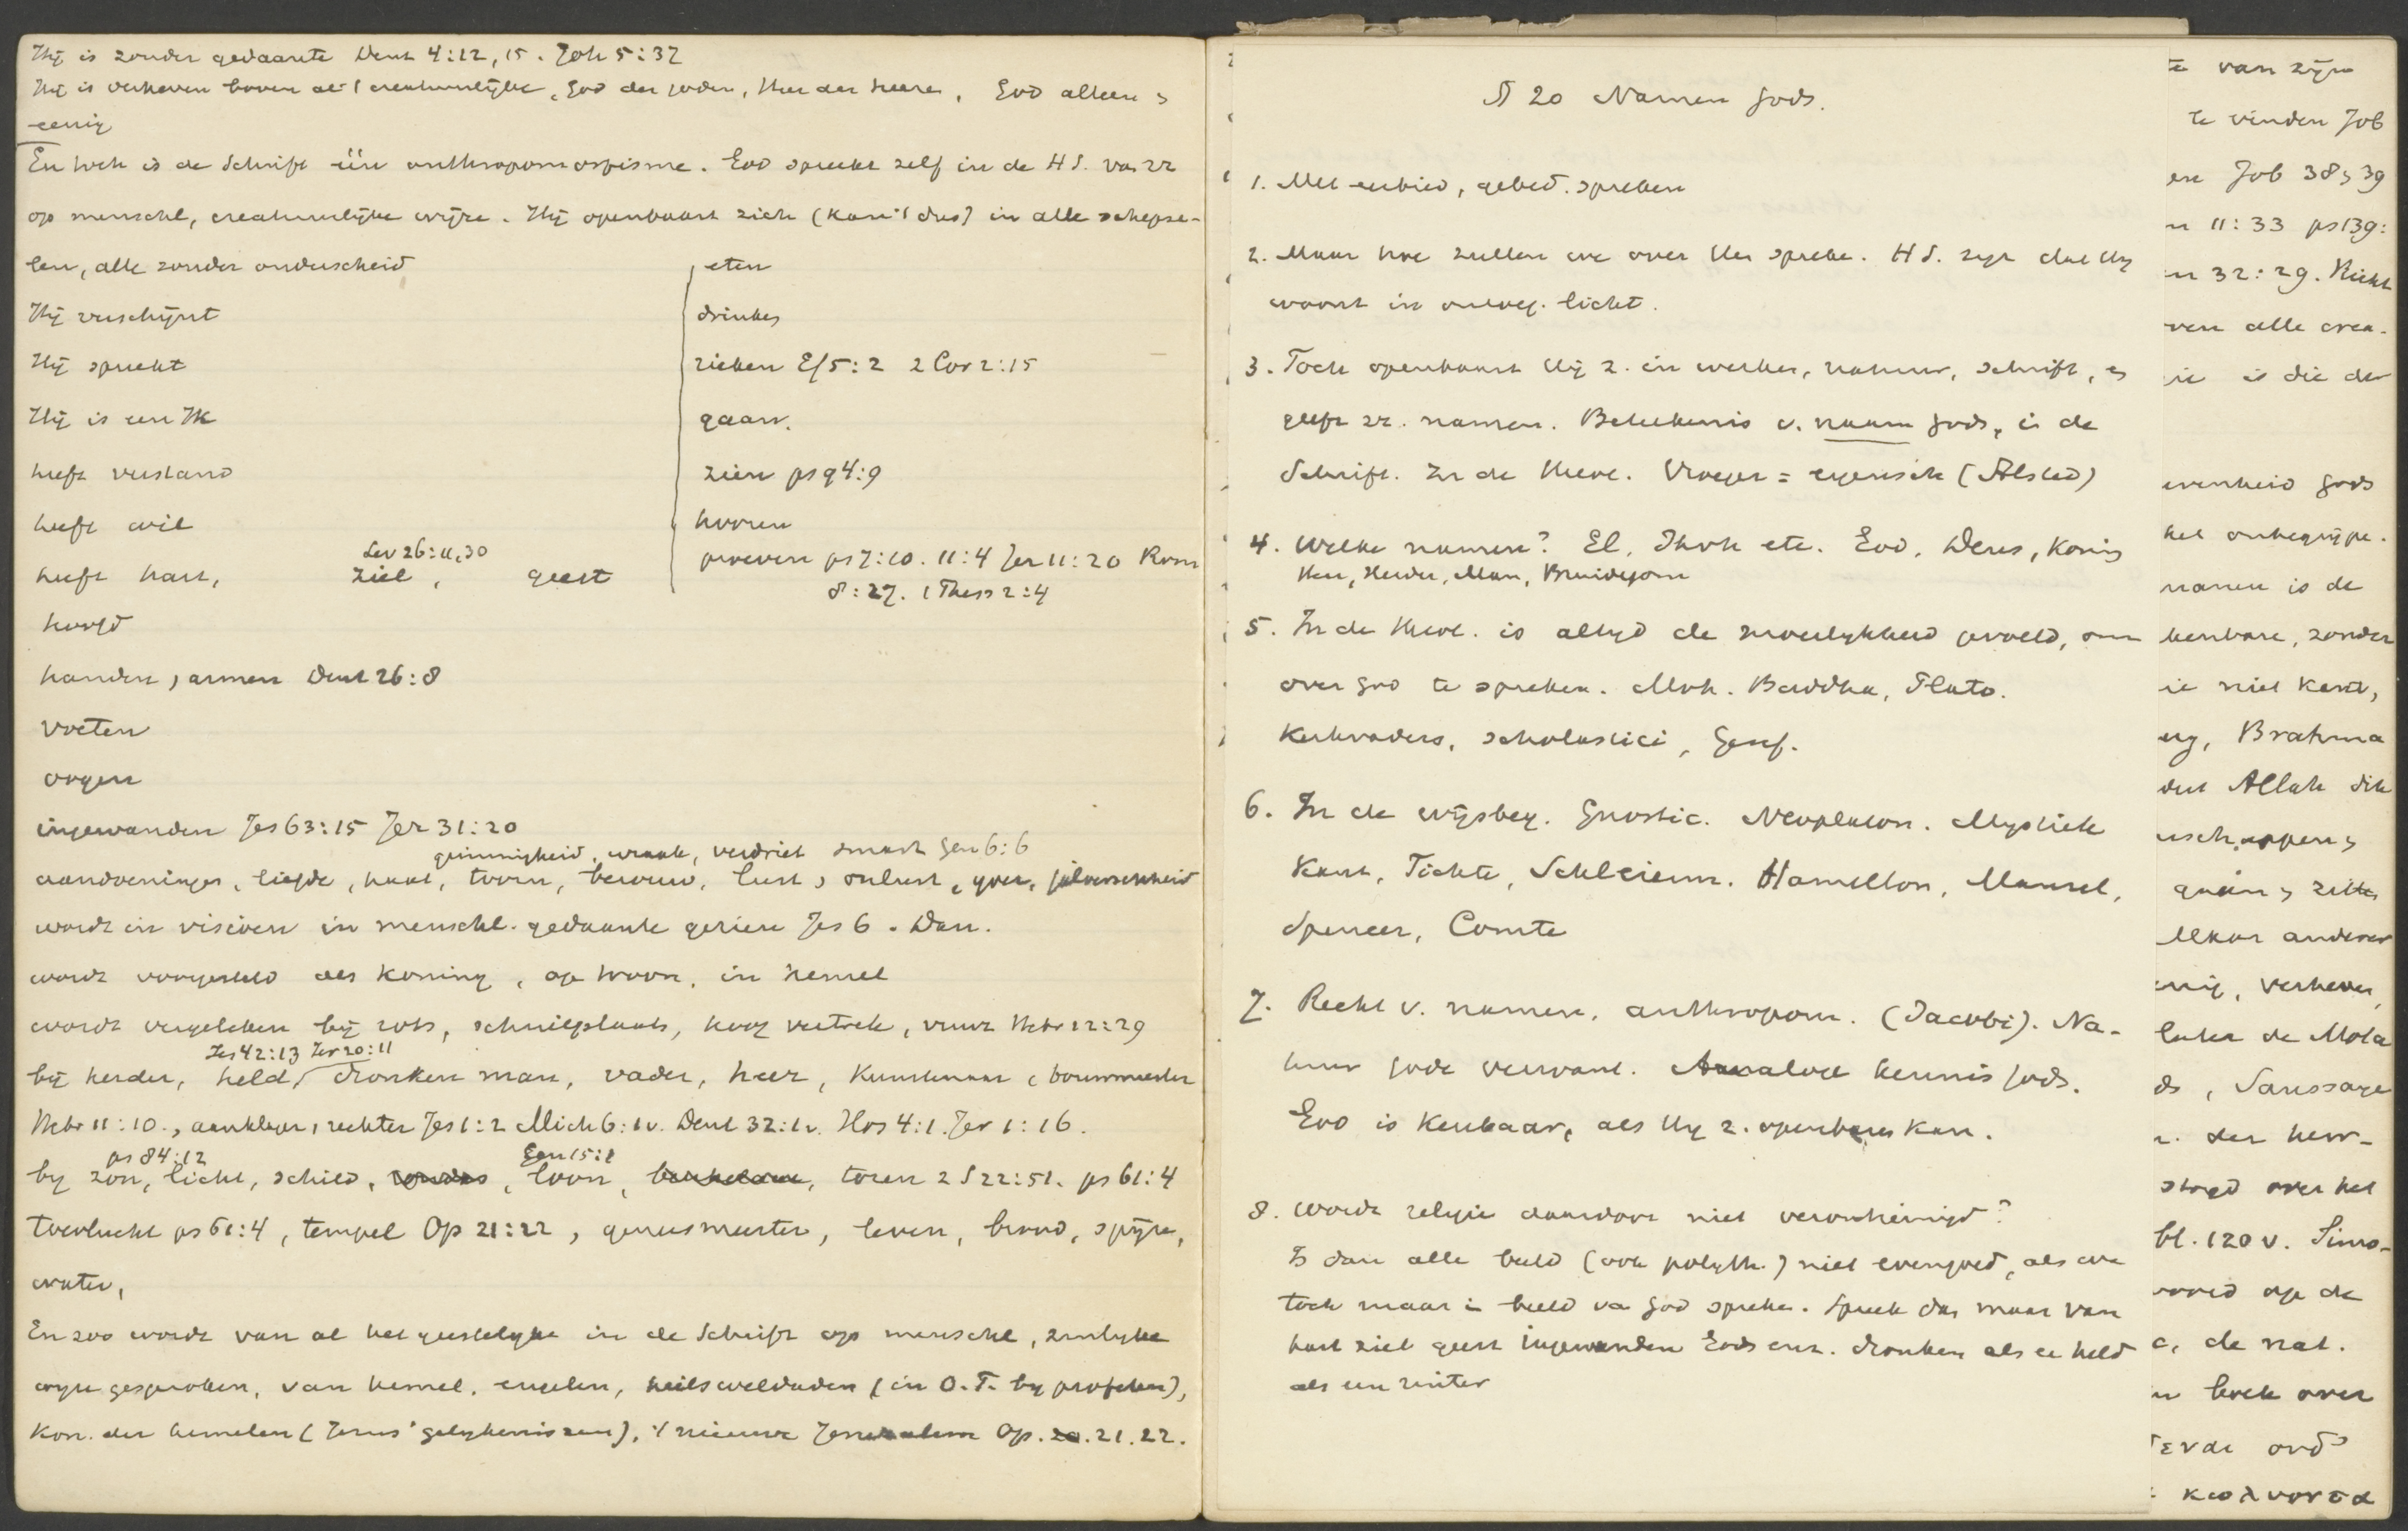 Hij is zonder gedaante Deut 4:12, 15. Joh 5:37
Hij is verheven boven al 't creatuurlijke, God der goden, Heer der heeren, God alleen &
eenig
En toch is de Schrift één anthropomorfisme. God spreekt zelf in de H S. van zz
op menschl, creatuurlijke wijze. Hij openbaart zich (kan 't dus) in alle schepse-
len, alle zonder onderscheid
Hij verschijnt
Hij spreekt
Hij is een Ik
heeft verstand
heeft wil
Lev 26:11,30
heeft hart, ziel, geest
hoofd
handen, armen Deut 26:8
voeten
oogen
ingewanden Jes 63:15 Jer 31:20
eten
drinken
rieken Ef 5:2 2 Cor 2:15
gaan.
zien ps 94:9
hooren
proeven ps 7:10. 11:4 Jer 11:20 Rom
8:27. 1 Thess 2:4
grimmigheid, wraak, verdriet smart Gen 6:6
aandoeningen, liefde, haat, toorn, berouw, lust, onlust, yver, jaloerschheid
wordt in visioen in menschl. gedaante gezien Jes 6. Dan.
wordt voorgesteld als koning, op troon, in hemel
wordt vergeleken bij rots, schuilplaats, hoog vertrek, vuur Hebr 12:29
Jes 42:13 Jer 20:11
bij herder, held, dronken man, vader, heer, Kunstenaar, bouwmeester
Hebr 11:10., aanklager, rechter Jes 1:2 Mich 6:1v. Deut 32:1v. Hos 4:1. Jer 1:16.
ps 84:12 Gen 15:1
by zon, licht, schild, loon, toren 2 S 22:51. ps 61:4
toevlucht ps 61:4, tempel Op 21:22, geneesmeester, leven, brood, spijze,
water,
En zoo wordt van al het geestelyke in de Schrift op menschl, zinlyke
wyze gesproken, van hemel, engelen, heilsweldaden (in O.T. by profeten),
Kon. der hemelen (Jezus' gelykenissen), 't nieuwe Jeruzalem Op. 21.22.
§ 20 Namen Gods.
1. Met eerbied, gebed. spreken
2. Maar hoe zullen we over Hem spreke. H S. zegt dat Hy
woont in ontoeg. licht.
3. Toch openbaart Hij z. in werken, natuur, schrift, &
geeft zz. namen. Beteekenis v. naam Gods, in de
Schrift. In de theol. Vroeger = eigensch (Alsted)
4. Welke namen? El, Jhvh etc. God, Deus, Koning
Heer, Herder, Man, Bruidegom
5. In de theol. is altyd de moeilykheid gevoeld, om
over God te spreken. Moh. Buddha, Plato.
Kerkvaders, scholastici, Geref.
6. In de wijsbeg. Gnostic. Neoplaton. Mystiek
Kant, Fichte, Schleierm. Hamilton, Mansel,
Spencer, Comte
7. Recht v. namen, anthropom. (Jacobi). Na-
tuur Gode verwant. Analoge kennis Gods.
God is kenbaar, als Hy z. openbaren kan.
8. Wordt religie daardoor niet verontreinigd?
Is dan alle beeld (ook polyth.) niet evengoed, als we
toch maar in beeld van God spreke. Spreek dus maar van
hart ziel geest ingewanden Gods enz. dronken als ee held
als een ruiter
van zijn
te vinden Job
Job 38 & 39
11:33 ps 139:
32:29. Richt
alle crea-
is die der
Gods
het onbegrijpe-
namen is de
kenbare, zonder
niet kent,
Brahma
Allah die
& zitten
Maar anderen
verheven,
de Mola
, Saussaye
der heer-
over het
bl. 120 v. Simo-
op de
de nat.
boek over